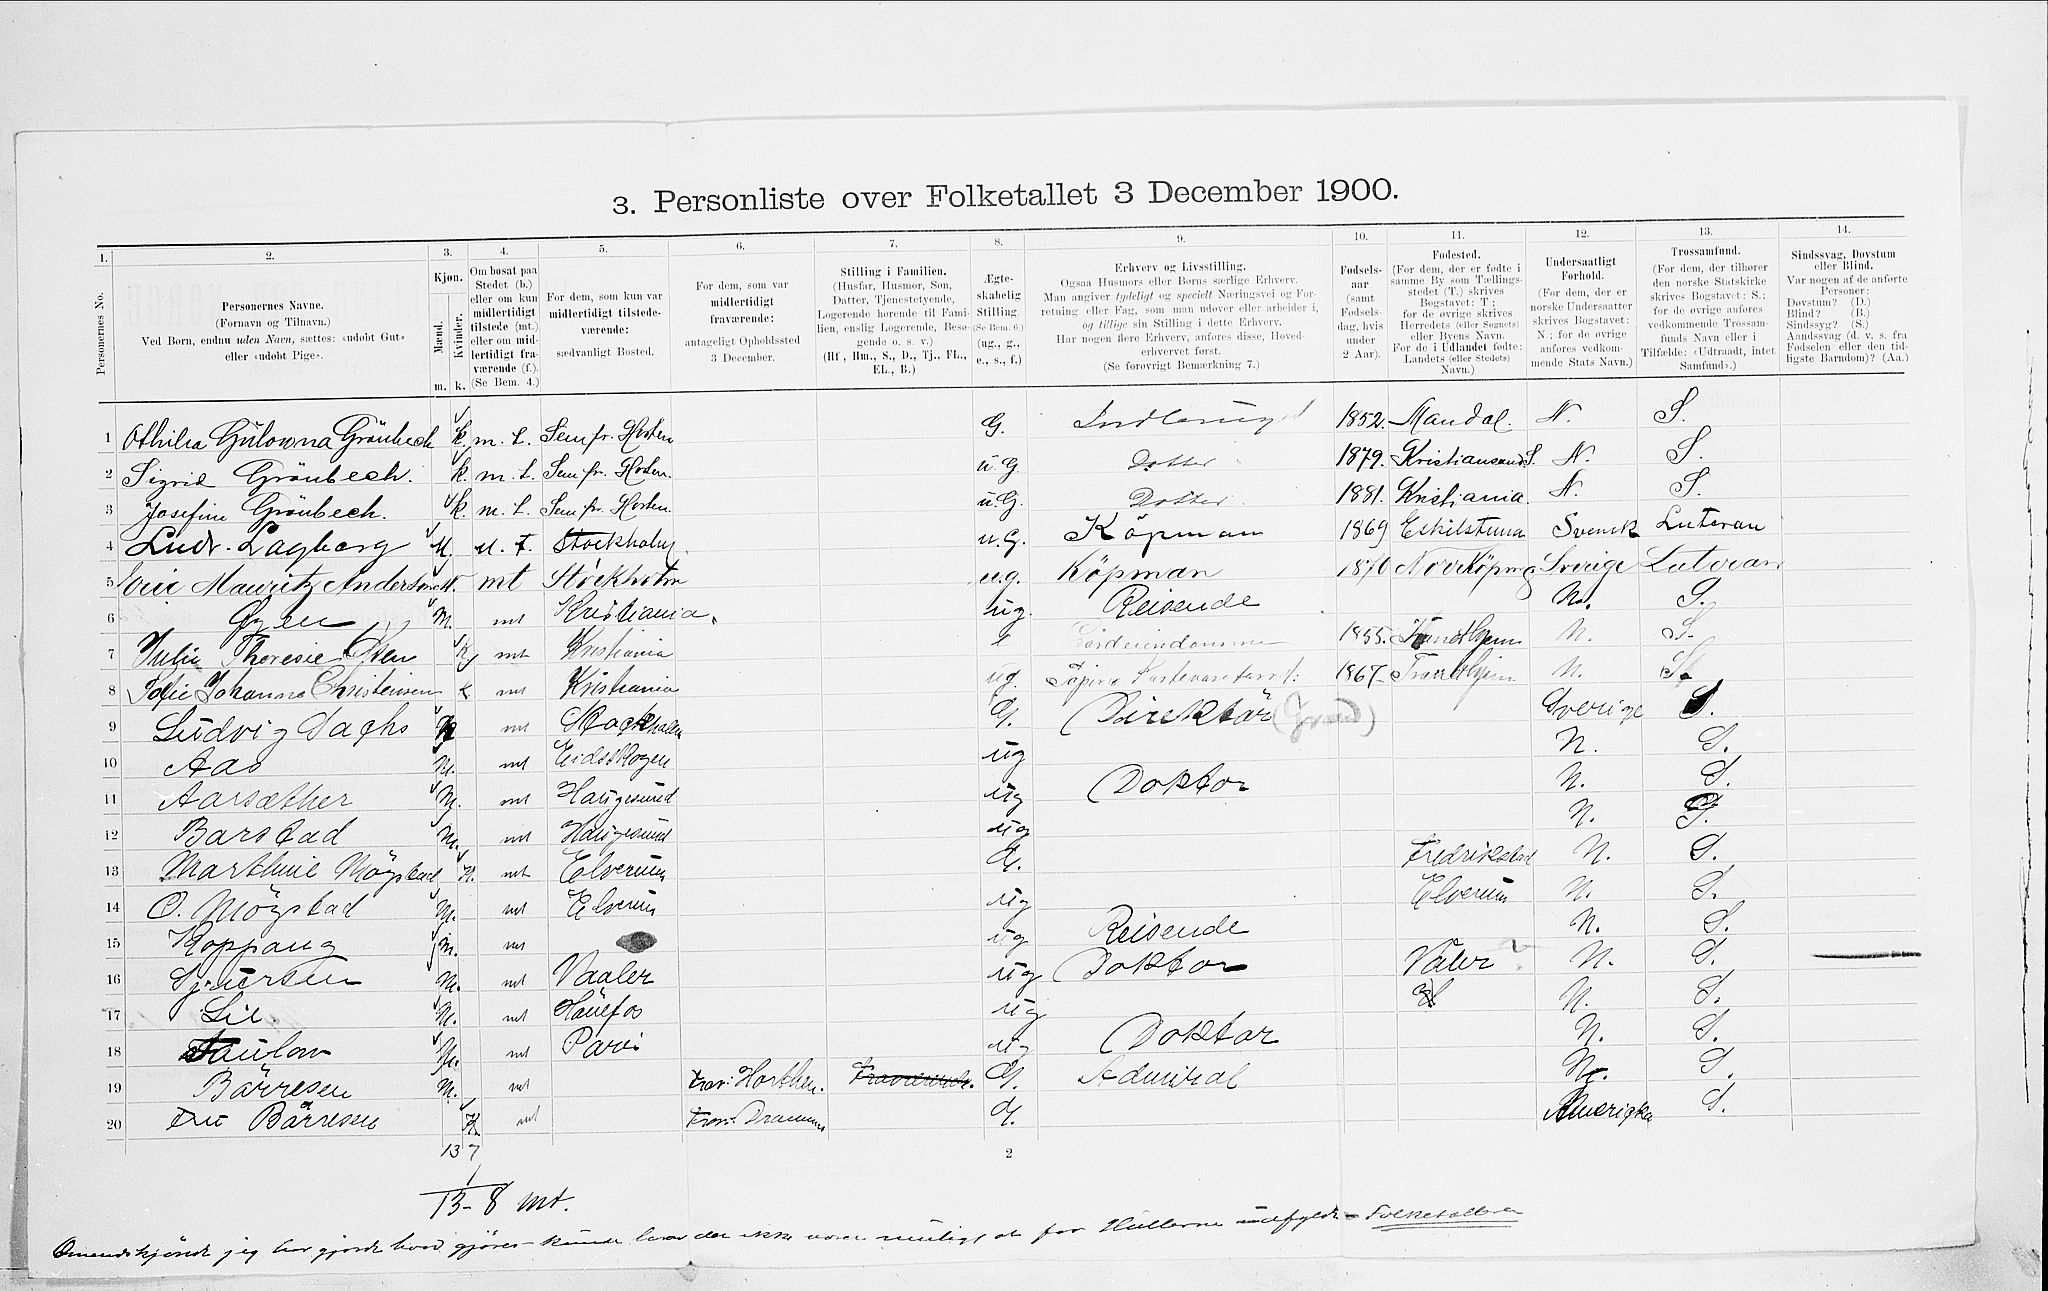 3. Personliste over Folketallet 3 December 1900.
1. 2. 3. 4. 5. 6. 7. 8. 9. 10. 11. 12. 13. 14.
Personernes No.
Personernes Navne.
(Fornavn og Tilnavn.)
Ved Børn, endnu uden Navn, sættes: «udøbt Gut»
eller «udøbt Pige».
Kjøn.
Mænd.
Kvinder.
m. k.
Om bosat paa
Stedet (b.)
eller om kun
midlertidigt
tilstede (mt.)
eller om mid-
lertidigt fra-
værende (f.).
(Se Bem. 4.)
For dem, som kun var
midlertidigt tilstede-
værende:
sædvanligt Bosted.
For dem, som var
midlertidigt
fraværende:
antageligt Opholdssted
3 December.
Stilling i Familien.
(Husfar, Husmor, Søn,
Datter, Tjenestetyende,
Logerende hørende til Fami-
lien, enslig Logerende, Besø-
gende o. s. v.)
(Hf., Hm., S., D., Tj., FL.,
EL., B.)
Ægte-
skabelig
Stilling.
(Se Bem. 6.)
(ug., g.,
e., s., f.)
Erhverv og Livsstilling.
Ogsaa Husmors eller Børns særlige Erhverv.
Man angiver tydeligt og specielt Næringsvei og For-
retning eller Fag, som man udøver eller arbeider i,
og tillige sin Stilling i dette Erhverv.
Har nogen flere Erhverv, anføres disse, Hoved-
erhvervet først.
(Se forøvrigt Bemærkning 7.)
Fødsels-
aar
(samt
Fødsels-
dag, hvis
under
2 Aar).
Fødested.
(For dem, der er fødte i
samme By som Tællings-
stedet (T.) skrives
Bogstavet: T.;
for de øvrige skrives
Herredets (eller Sognets)
eller Byens Navn.
For de i Udlandet fødte:
Landets (eller Stedets)
Navn.)
Undersaatligt
Forhold.
(For dem, der er
norske Undersaatter
skrives Bogstavet:
N.; for de øvrige
anføres vedkom-
mende Stats Navn.)
Trossamfund.
(For dem, der tilhører
den norske Statskirke
skrives Bogstavet: S.;
for de øvrige anføres
vedkommende Trossam-
funds Navn eller i
Tilfælde: «Udtraadt, intet
Samfund».)
Sindssvag, Døvstum
eller Blind.
Var nogen af de anførte
Personer:
Døvstum? (D.)
Blind? (B.)
Sindssyg? (S.)
Aandssvag (d. v. s. fra
Fødselen eller den tid-
ligste Barndom)? (Aa.)
1 Othilia Gülowna Grönbech k. m. t. Sem pr. Horten G. 1852. Mandal. N. S.
2 Sigrid Grönbech. k. m. t. Sem pr. Horten u. G. Dotter 1879. Kristiansand S. N. S.
3 Josefine Grönbech. k. m. t. Sem pr. Horten u. G. Dotter. 1881. Kristiania. N. S.
4 Ludv. Lagberg M. m. t. Stockholm. u. G. Köpman 1869 Eskilstuna Svensk Luteran
5 Eric Mauritz Anderson M. mt Stockholm u.g. Köpman 1870 Norrköping Sverige Luteran
6 Øyen M. mt Kristiania. ug. Reisende N. S.
7 Julie Theresie Øien K mt Kristiania e Gårdeierinde 1855. Trondhjem N. S.
8 Sofie Johanna Christensen k mt Kristiania ug. 1867. Trondhjem N. S.
9 Ludvig Sachs M mt Stockholm G. Direktør (Grand) Sverige S.
10 Aas M. mt Eidsskogen ug N. S.
11 Aarsæther M. mt Haugesund ug Doktor N. S.
12 Barstad M. mt Haugesund ug N. S.
13 Marthine Mögstad K. mt Elverum G. Fredrikstad N. S.
14 O. Mögstad M. mt Elverum ug Elverum N. S.
15 Koppang M. mt ug Reisende N. S.
16 Sjuersen M. mt Vaaler ug Doktor Våler N. S.
17 Lie. M. mt Hönefos ug N. S.
18 Taulow M. mt Paris ug Doktor N. S.
19 Börresen M. mt Horthen. G. Admiral N. S.
20 Fru Börresen K. mt Drammen G. Amerika S.
13 7
2
1
13 - 8 mt.
jeg har gjordt hvad gjøres kunde har der ikke været muligt at faa Hullerne udfyldt - Folketælleren